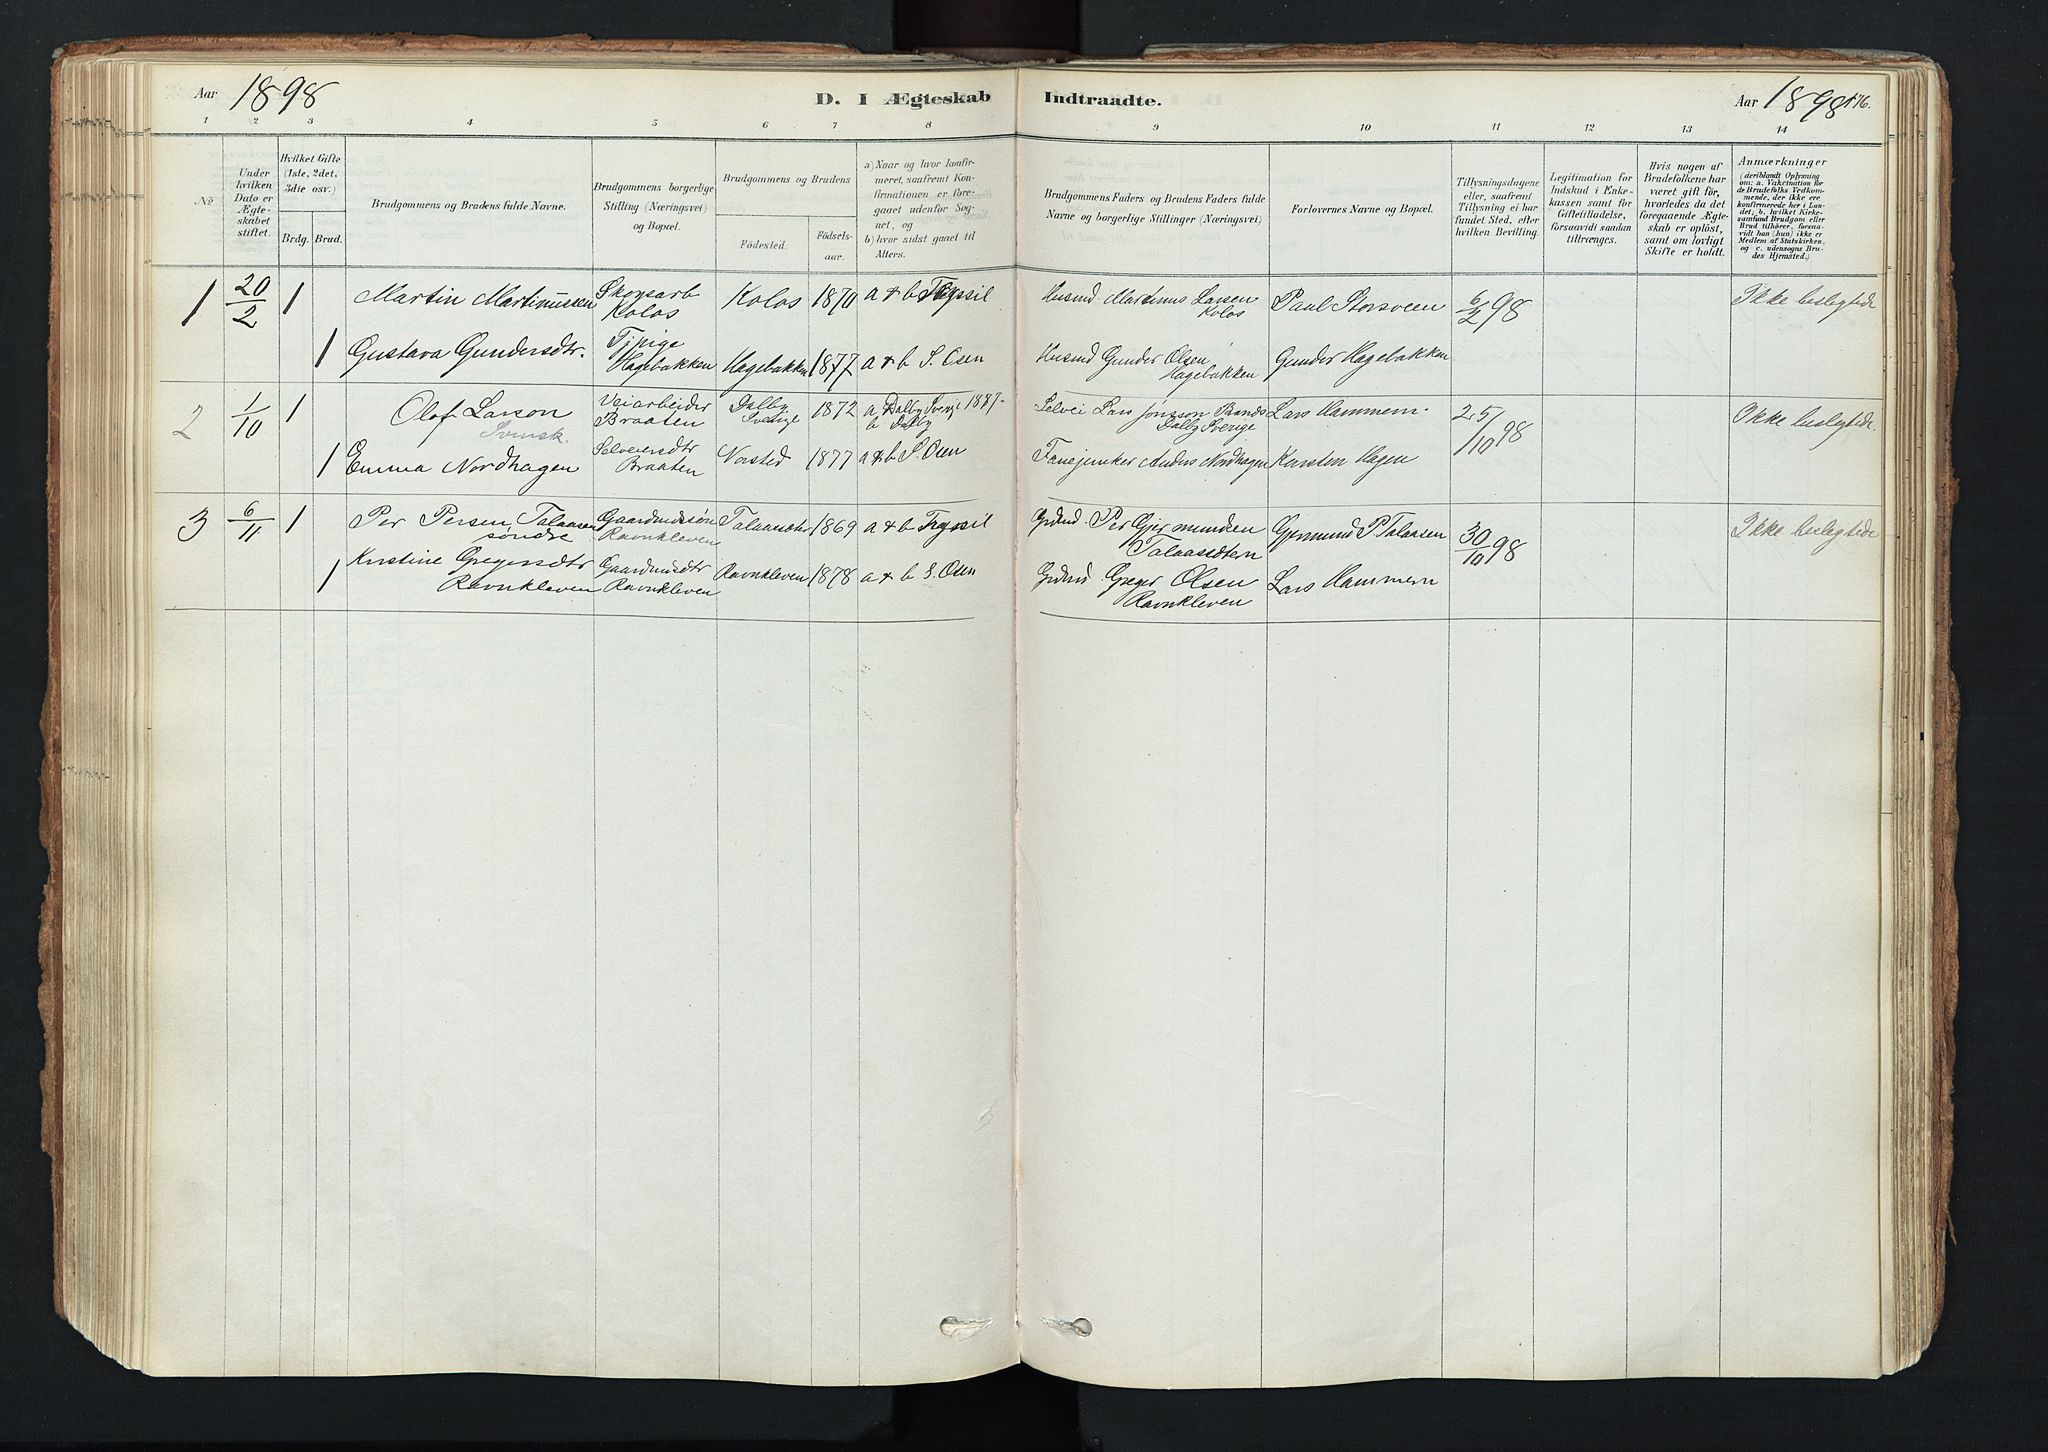 Aar 1898
D. I Ægteskab Indtraadte.
Aar 1898 176.
1 2 3 4 5 6 7 8 9 10 11 12 13 14
No
Under hvilken Dato er Ægteskabet stiftet.
Hvilket Gifte (1ste, 2det, 3die osv.)
Brdg. Brud.
Brudgommens og Brudens fulde Navne.
Brudgommens borgerlige Stilling (Næringsvei) og Bopæl.
Brudgommens og Brudens
Födested. Födsels-aar.
a) Naar og hvor konfirmeret, saafremt Konfirmationen er foregaaet udenfor Sognet, og
b) hvor sidst gaaet til Alters.
Brudgommens Faders og Brudens Faders fulde Navne og borgerlige Stillinger (Næringsvei)
Forlovernes Navne og Bopæl.
Tillysningsdagene eller, saafremt Tillysning ei har fundet Sted, efter hvilken Bevilling.
Legitimation for Indskud i Enkekassen samt for Giftetilladelse, forsaavidt saadan tiltrænges.
Hvis nogen af Brudefolkene har været gift för, hvorledes da det foregaaende Ægteskab er oplöst, samt om lovligt Skifte er holdt.
Anmærkninger (deriblandt Oplysning om: a. Vakcination for de Brudefolks Vedkommende, der ikke ere konfirmerede her i Landet; b. hvilket Kirkesamfund Brudgom eller Brud tilhörer, forsaavidt han (hun) ikke er Medlem af Statskirken, og c. udensogns Brudes Hjemsted.)
1 20/2 1 Martin Martinussen Skogsarb Kolos Kolos 1870 a & b Trysil Husmd Martinus Larsen Kolos Paul Storsveen 6/2 98 Ikke beslegtede
1 Gustava Gundersdtr. Tjpige Hagebakken Hagebakken 1877 a & b S. Osen Husmd Gunder Olsen Hagebakken Gunder Hagebakken
2 1/10 1 Olof Larson Svensk. Veiarbeider Braaten Dalby Sverige 1872 a Dalby Sverge 1887. b Dalby Selvei Lars Jonsson Dalby Sverige Lars Hammern. 25/10 98 Ikke beslegtede.
1 Emma Nordhagen Selveiersdtr Braaten Norsted 1877 a & b S. Osen Fanejunker Anders Nordhagen Karsten Hagen
3 6/11 1 Per Persen Talaasen söndre Gaardmdssön Ravnkleven 1869 a & b Trysil Grdmd Per Gjermundsen Gjermund P. Talaasen 30/10 98 Ikke beslegtede
1 Kristine Gregersdtr Ravnkleven Gaardmdsdtr Ravnkleven Ravnkleven 1878 a & b S. Osen Grdmd Greger Olsen Ravnkleven Lars Hammern